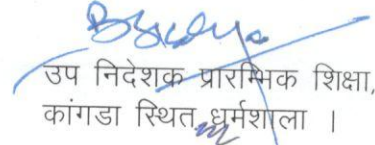 उप निदेशक प्रारम्भिक शिक्षा,
कांगडा स्थित धर्मशाला ।